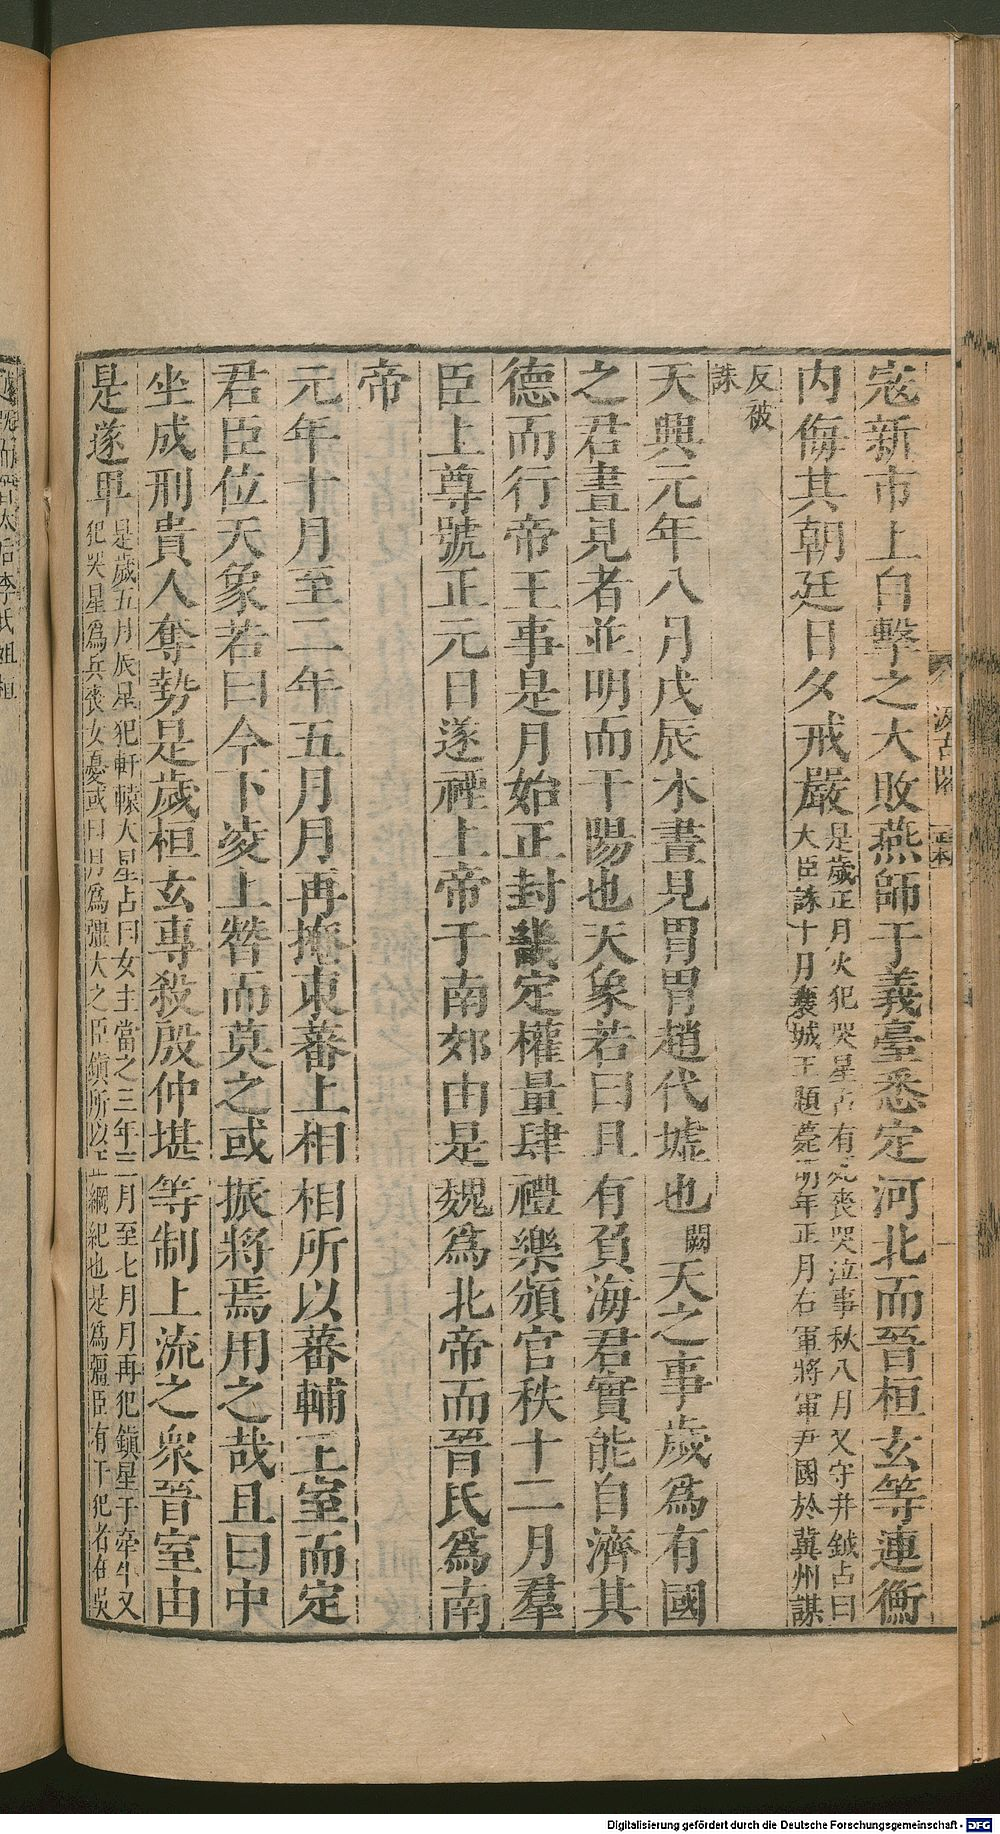 寇新市上自擊之大敗燕師于義臺悉定河北而晉桓玄等連衡
内侮其朝廷日夕戒嚴
是歲正月火犯哭星占有死喪哭泣事秋八月又守井鉞占曰
大臣誅十月襄城王題薨明年正月右軍將軍尹國於冀州謀
反破
誅
天興元年八月戊辰木晝見胃胃趙代墟也闕天之事歲爲有國
之君晝見者並明而干陽也天象若曰且有負海君實能自濟其
德而行帝王事是月始正封畿定權量肆禮樂頒官秩十二月羣
臣上尊號正元日遂禋上帝于南郊由是魏爲北帝而晉氏爲南
帝
元年十月至二年五月月再掩東蕃上相相所以蕃輔王室而定
君臣位天象若曰今下凌上僭而莫之或振將焉用之哉且曰中
坐成刑貴人奪勢是歲桓玄專殺殷仲堪等制上流之衆晉室由
是遂卑
是歲五月辰星犯軒轅大星占曰女主當之三年三月至七月月再犯鎮星于牽牛又
犯哭星爲兵喪女憂或曰月爲彊大之臣鎮所以正綱紀也是爲彊臣有干犯者在吳
汲古閣
正本
Digitalisierung gefördert durch die Deutsche Forschungsgemeinschaft - DFG